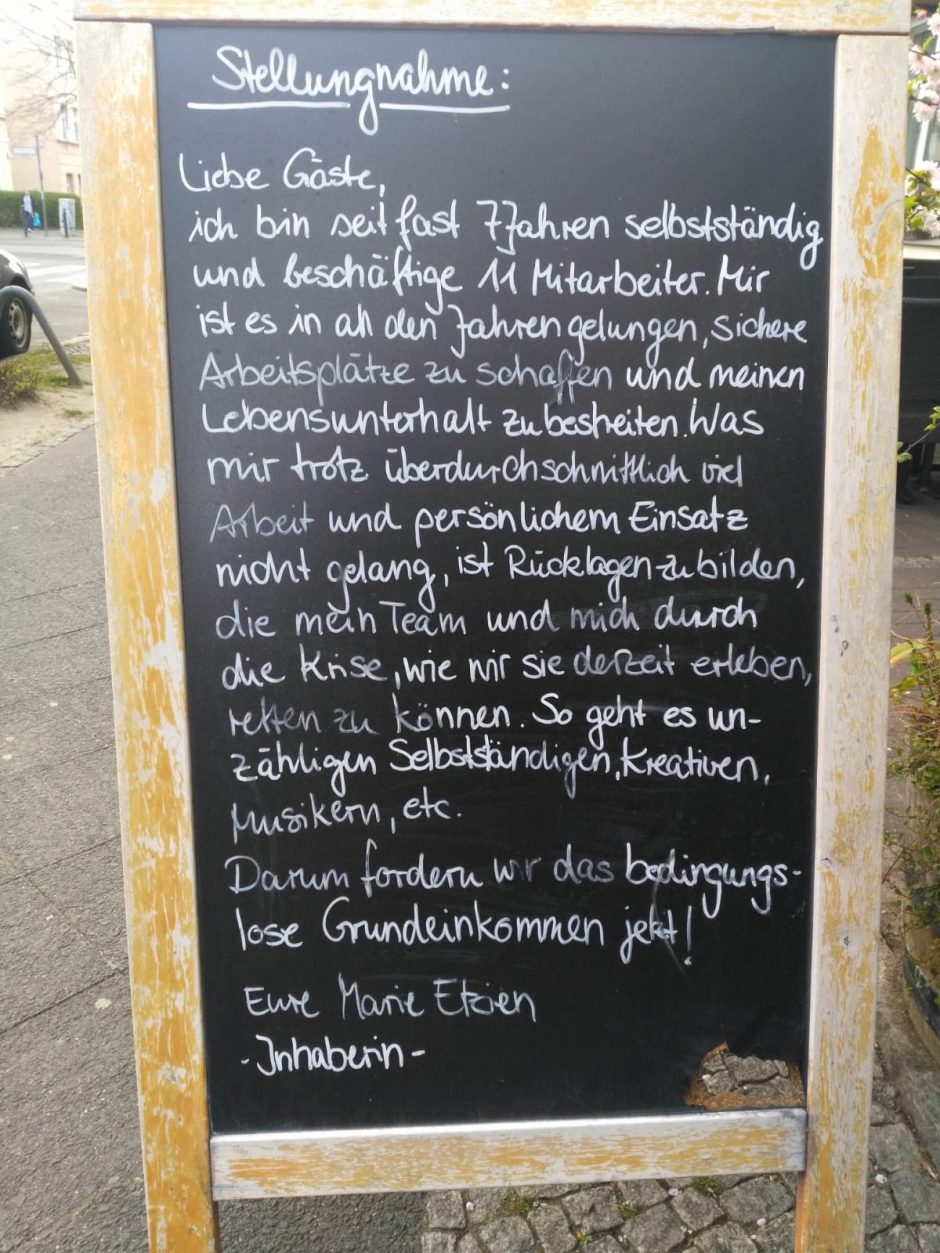 Stellungnahme:
Liebe Gäste,
ich bin seit fast 7 Jahren selbstständig
und beschäftige 11 Mitarbeiter. Mir
ist es in all den Jahren gelungen, sichere
Arbeitsplätze zu schaffen und meinen
Lebensunterhalt zu bestreiten. Was
mir trotz überdurchschnittlich viel
Arbeit und persönlichem Einsatz
nicht gelang, ist Rücklagen zu bilden,
die mein Team und mich durch
die Krise, wie wir sie derzeit erleben,
retten zu können. So geht es un-
zähligen Selbstständigen, Kreativen,
Musikern, etc.
Darum fordern wir das bedingungs-
lose Grundeinkommen jetzt!
Eure Marie
-Inhaberin-